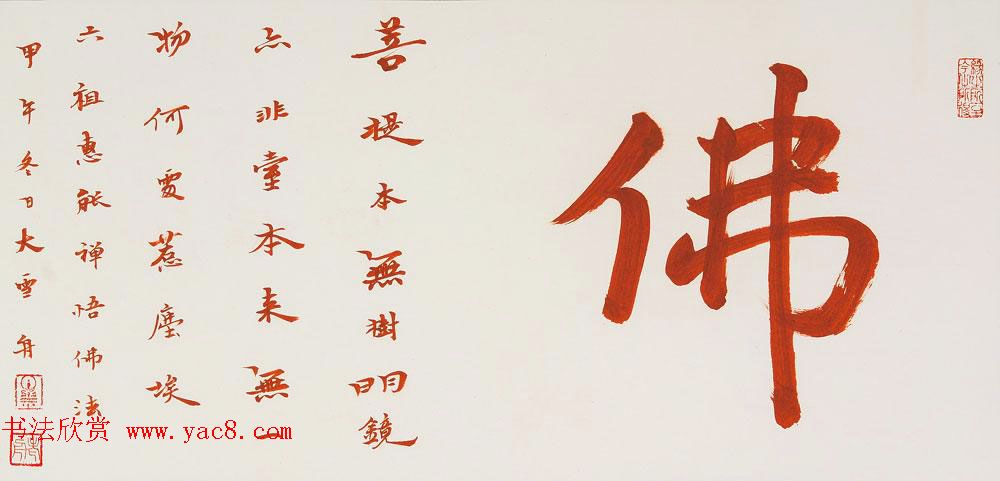 佛
菩提本無樹明鏡
亦非臺本来無一
物何處惹塵埃
六祖惠能禅悟佛法
甲午冬日大雪舟
书法欣赏 www.yac8.com